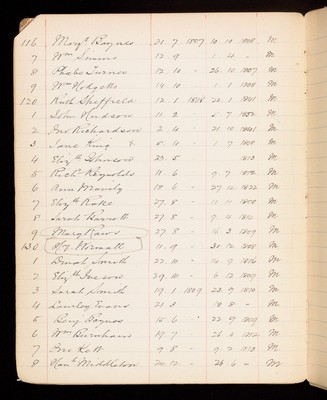 116 Marg.t Baynes 21. 7 1807 10 10 1808 M
7 Wm Simms 12. 9 - 1. 4 - M
8 Phebe Turner 12. 10 - 26. 10 1807 M
9 Wm 14. 10 - 1. 1 1808 M
120 Ruth Sheffield 12. 1 1808 22. 1 1841 M
1 John Hudson 11. 2 5. 7 1852 M
2 Jno Richardson 2. 4 21. 10 1841 M
3 Jane King 8. 4 - 1. 7 1808 M
4 Eliz.th Johnson 23. 5 1813 M
5 Rich.d Reynolds 11. 6 9. 7 M
6 Ann 18. 6 - 27. 12 1822 M
7 Eliz.th Rake 27. 8 - 11. 11 M
8 Sarah Barrett 27. 8 - 9. 4 M
9 Mary Raw 27. 8 14. 3 1809 M
130 11. 9 31. 12 1808 M
1 Dinah Smith 22. 10 - 14. 9 1816 M
2 Eliz.th 29. 10 - 6. 12 1809 M
3 Sarah Smith 19. 1 1809 23. 9 1810 M
4 Evans 21. 3 18. 8 - M
5 Benj Baynes 15. 6 22. 9 1809 M
6 Wm Burnham 19. 7 26. 2 1812 M
7 Jno 9. 8 - 9. 2 M
8 Han.h Middleton 20. 12 - 26. 6 - M